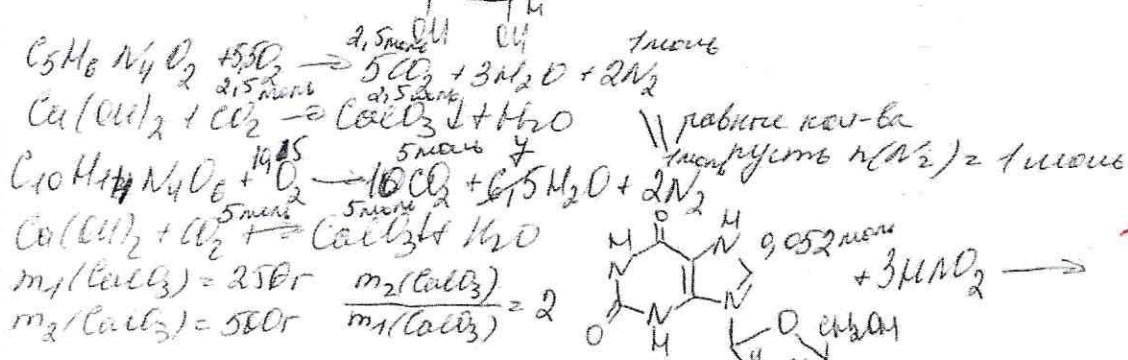 OH OH H
C5H6N4O2 +5,5O2 → 5CO2 + 3H2O + 2N2
2,5моль 1моль
Ca(OH)2 + CO2 → CaCO3↓ + H2O
2,5моль 2,5моль
равные кол-ва
пусть n(N2) = 1моль
C10H14N4O6 + O2 → 10CO2 + 6,5H2O + 2N2
5моль 1моль
Ca(OH)2 + CO2 → CaCO3↓ + H2O
5моль 5моль
m1(CaCO3) = 250г m2(CaCO3)/m1(CaCO3) = 2
m2(CaCO3) = 500г
0,052моль
+ 3HNO2 →
H N O N H N N H O O CH2OH